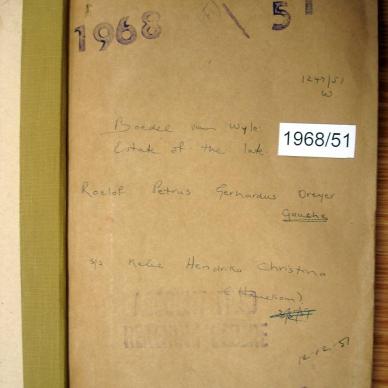 1968 \ 51
1247/51
W
Boedel van Wyle
Estate of the late
1968/51
Roelof Petrus Gerhardus Dreyer
s/s Helie Hendrika Christina
12-12-51